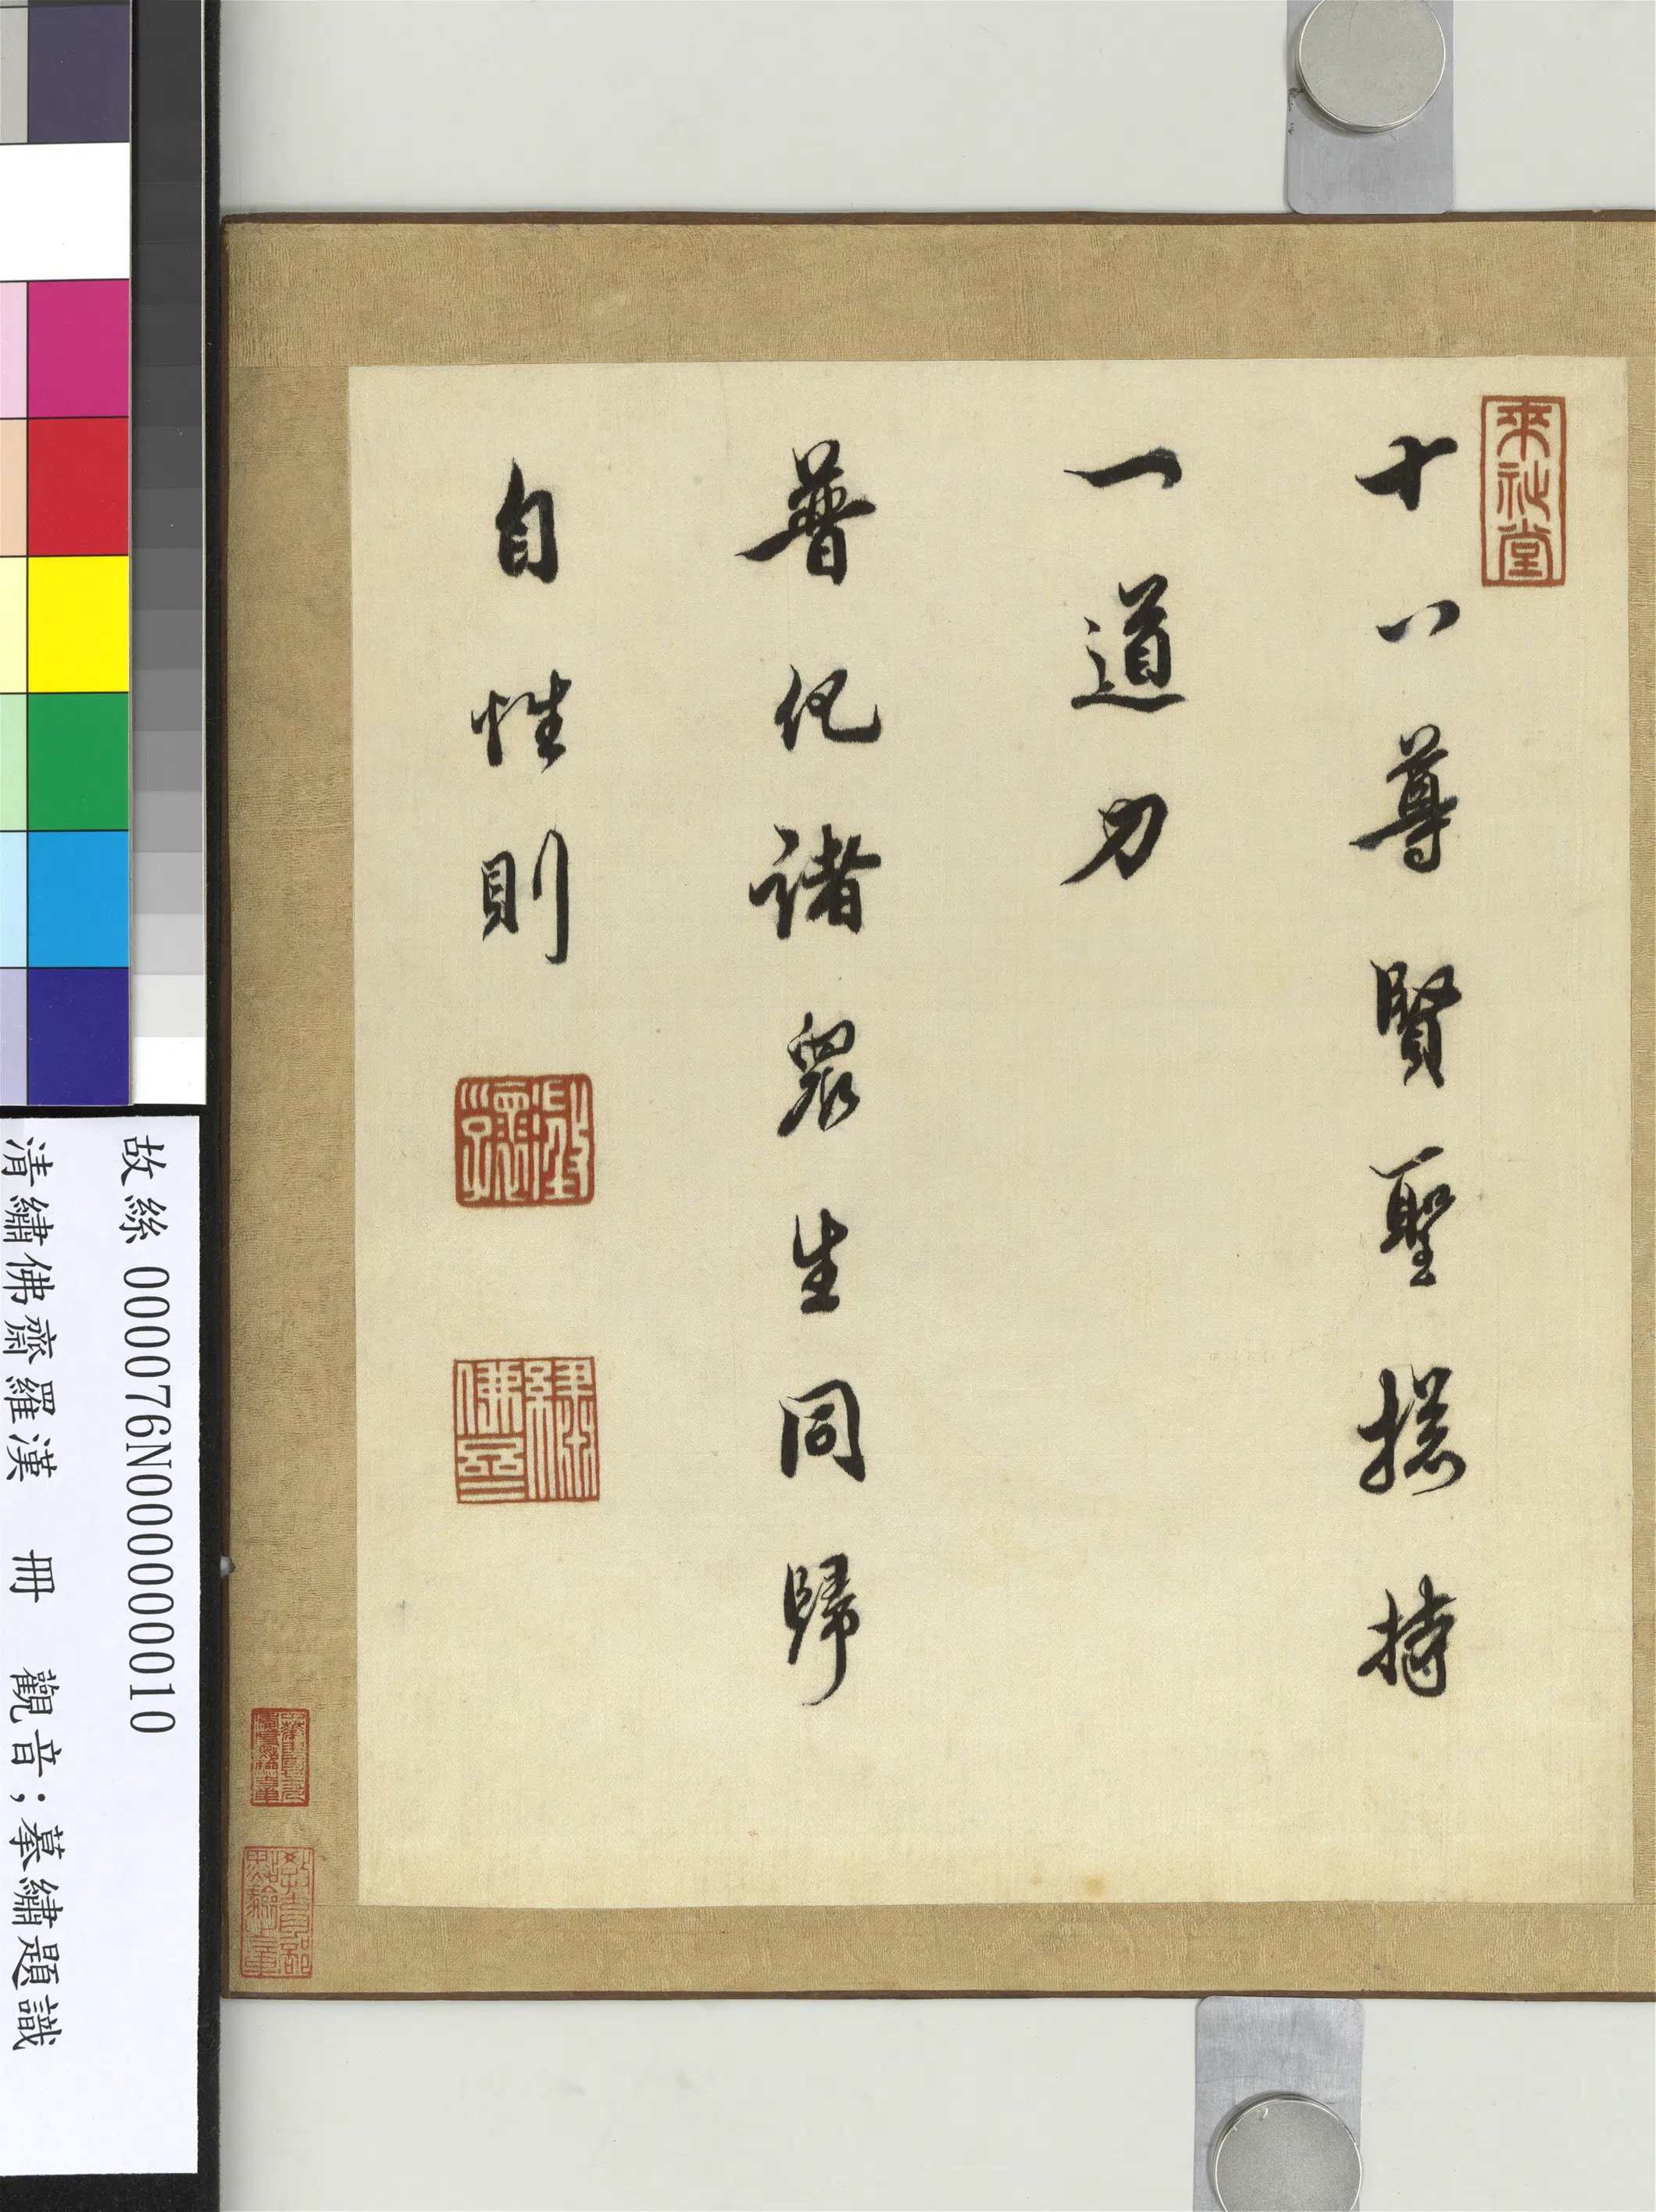 十八尊賢聖摠持
一道力
普化諸眾生同歸
自性則
繡佛
教育部
點驗之章
故絲 000076N000000010
清繡佛齋羅漢 冊 觀音；摹繡題識